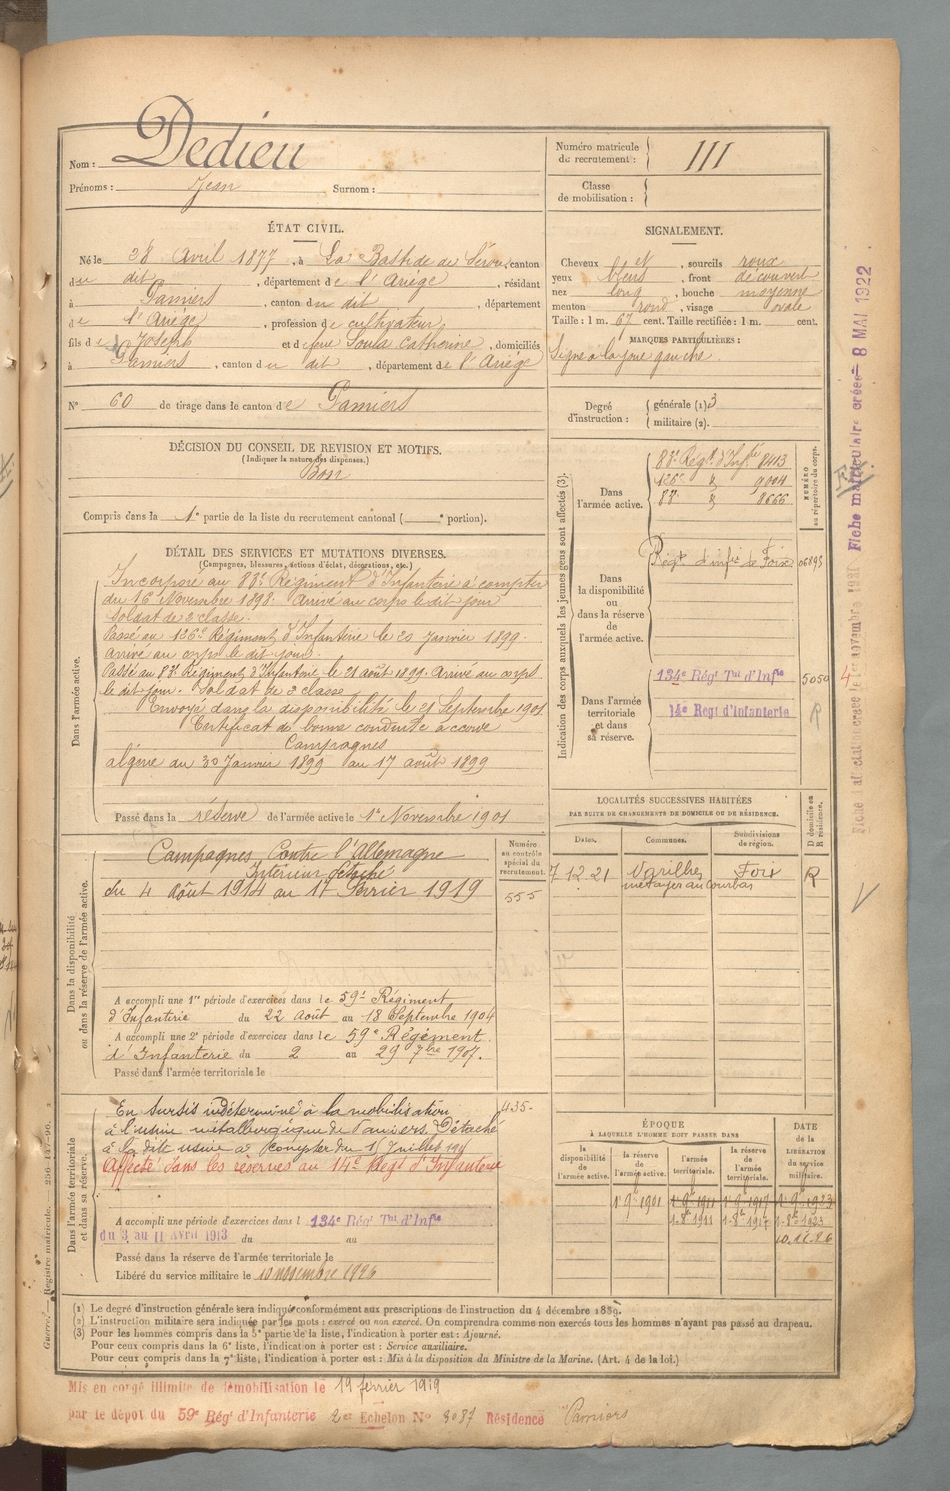 Nom : Dedieu
Prénoms : Jean Surnom :
Numéro matricule du recrutement : 111
Classe de mobilisation :
ÉTAT CIVIL.
Né le 28 Avril 1877, à La Bastide de Sérou, canton
du dit, département de l'Ariège, résidant
à Pamiers, canton du dit, département
de l'Ariège, profession de cultivateur
fils de Joseph et de feue Soula Catherine, domiciliés
à Pamiers, canton du dit, département de l'Ariège
N° 60 de tirage dans le canton de Pamiers
SIGNALEMENT.
Cheveux et, sourcils roux
yeux bleus, front découvert
nez long, bouche moyenne
menton rond, visage ovale
Taille : 1 m. 67 cent. Taille rectifiée : 1 m. cent.
MARQUES PARTICULIÈRES :
Signe à la joue gauche.
Degré d'instruction : générale (1) 3
militaire (2).
DÉCISION DU CONSEIL DE REVISION ET MOTIFS.
(Indiquer la nature des dispenses.)
Bon
Compris dans la 1e partie de la liste du recrutement cantonal ( e portion).
DÉTAIL DES SERVICES ET MUTATIONS DIVERSES.
(Campagnes, blessures, actions d'éclat, décorations, etc.)
Dans l'armée active.
Incorporé au 83e Régiment d'Infanterie à compter
du 16 Novembre 1898. Arrivé au corps le dit jour
soldat de 2e classe.
Passé au 126e Régiment d'Infanterie le 20 Janvier 1899.
Arrivé au corps le dit jour.
Passé au 83e Régiment d'Infanterie, le 21 août 1899. Arrivé au corps
le dit jour. Soldat de 2e classe
Envoyé dans la disponibilité le 21 Septembre 1901
Certificat de bonne conduite accordé
Campagnes
Algérie du 30 Janvier 1899 au 17 août 1899
Passé dans la réserve de l'armée active le 1er Novembre 1901
Indication des corps auxquels les jeunes gens sont affectés (3).
NUMÉRO au répertoire du corps.
Dans l'armée active.
83e Régt d'Infie 8413
126e d° 9004
83e d° 8666
Dans la disponibilité ou dans la réserve de l'armée active.
Régt d'infie de Foix 06895
Dans l'armée territoriale et dans sa réserve.
134e Régt Tal d'Infie 5050
14e Regt d'Infanterie R
Fiche matriculaire créée 8 MAI 1922
LOCALITÉS SUCCESSIVES HABITÉES
PAR SUITE DE CHANGEMENTS DE DOMICILE OU DE RÉSIDENCE.
D domicile ou R résidence.
Dates. Communes. Subdivisions de région.
7 12 21 Varilhes Foix R
métayer au Courbas
Dans la disponibilité ou dans la réserve de l'armée active.
Numéro au contrôle spécial du recrutement.
555
Campagnes Contre l'Allemagne
Intérieur
du 4 Août 1914 au 17 Février 1919
A accompli une 1re période d'exercices dans le 59e Régiment
d'Infanterie du 22 août au 18 Septembre 1904
A accompli une 2e période d'exercices dans le 59e Régiment
d'Infanterie du 2 au 29 7bre 1907.
Passé dans l'armée territoriale le
Dans l'armée territoriale et dans sa réserve.
435
En sursis indéterminé à la mobilisation
à l'usine métallurgique de Pamiers. Détaché
à la dite usine à compter du 1r Juillet 191
Affecté dans les réserves au 14e Régt d'Infanterie
A accompli une période d'exercices dans l 134e Régt Tal d'Infie
du 3 au 11 Avril 1913 du au
Passé dans la réserve de l'armée territoriale le
Libéré du service militaire le 10 novembre 1926
ÉPOQUE
A LAQUELLE L'HOMME DOIT PASSER DANS
la disponibilité de l'armée active.
la réserve de l'armée active.
l'armée territoriale.
la réserve de l'armée territoriale.
DATE de la LIBÉRATION du service militaire.
1r 9e 1901 1r 9e 1911 1r 9e 1917 1r 9e 1923
1r 8e 1911 1r 8e 1917 1r 8e 1923
10.11.26
Guerre. — Registre matricule.
(1) Le degré d'instruction générale sera indiqué conformément aux prescriptions de l'instruction du 4 décembre 1889.
(2) L'instruction militaire sera indiquée par les mots : exercé ou non exercé. On comprendra comme non exercés tous les hommes n'ayant pas passé au drapeau.
(3) Pour les hommes compris dans la 5e partie de la liste, l'indication à porter est : Ajourné.
Pour ceux compris dans la 6e liste, l'indication à porter est : Service auxiliaire.
Pour ceux compris dans la 7e liste, l'indication à porter est : Mis à la disposition du Ministre de la Marine. (Art. 4 de la loi.)
Mis en congé illimité de démobilisation le 19 février 1919
par le dépôt du 59e Régt d'Infanterie 2e Echelon N° 8087 Résidence Pamiers